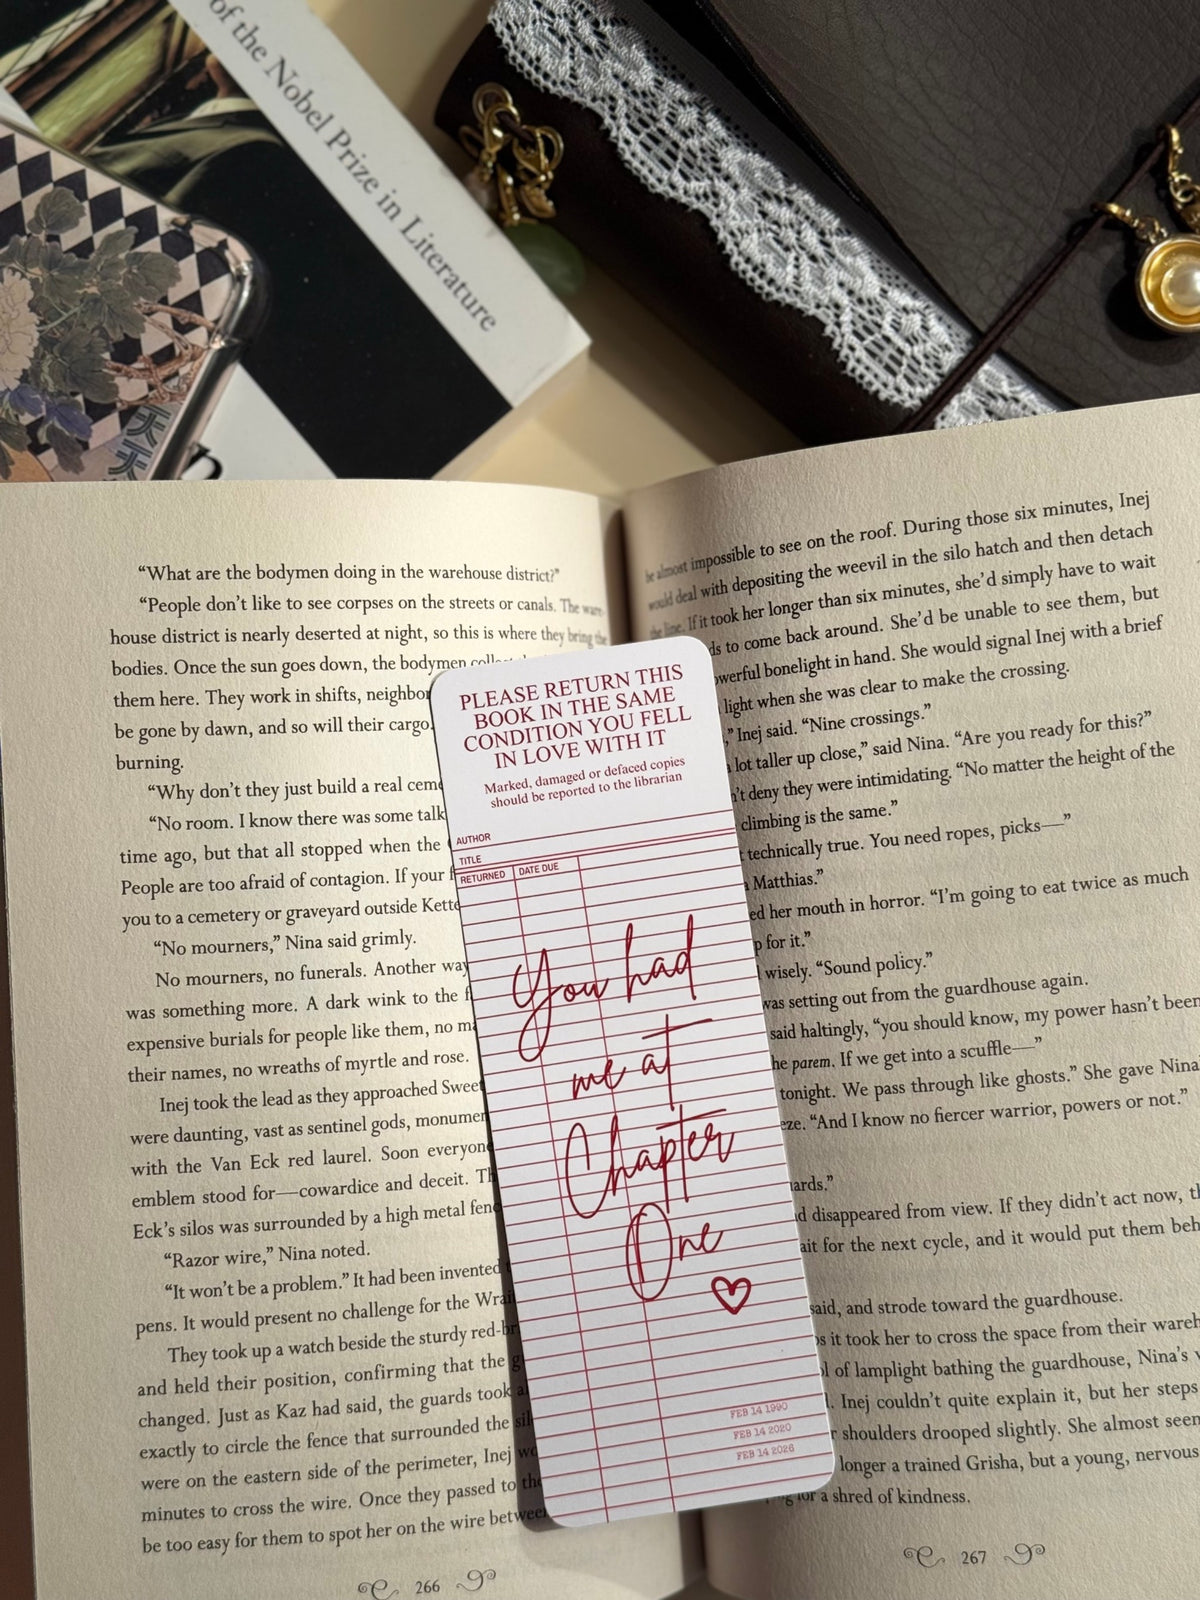 of the Nobel Prize in Literature
天
天
“What are the bodymen doing in the warehouse district?”
“People don’t like to see corpses on the streets or canals. The ware-
house district is nearly deserted at night, so this is where they bring the
bodies. Once the sun goes down, the bodymen
them here. They work in shifts, neighbor
be gone by dawn, and so will their cargo.
burning.
“Why don’t they just build a real ceme
“No room. I know there was some talk
time ago, but that all stopped when the
People are too afraid of contagion. If your
you to a cemetery or graveyard outside Kette
“No mourners,” Nina said grimly.
No mourners, no funerals. Another way
was something more. A dark wink to the f
expensive burials for people like them, no ma
their names, no wreaths of myrtle and rose.
Inej took the lead as they approached Sweet
were daunting, vast as sentinel gods, monumen
with the Van Eck red laurel. Soon everyone
emblem stood for—cowardice and deceit. Th
Eck’s silos was surrounded by a high metal fenc
“Razor wire,” Nina noted.
“It won’t be a problem.” It had been invented
pens. It would present no challenge for the Wrai
They took up a watch beside the sturdy red-br
and held their position, confirming that the g
changed. Just as Kaz had said, the guards took a
exactly to circle the fence that surrounded the sil
were on the eastern side of the perimeter, Inej wo
minutes to cross the wire. Once they passed to the
be too easy for them to spot her on the wire between
266
PLEASE RETURN THIS
BOOK IN THE SAME
CONDITION YOU FELL
IN LOVE WITH IT
Marked, damaged or defaced copies
should be reported to the librarian
AUTHOR
TITLE
RETURNED DATE DUE
You had
me at
Chapter
One
FEB 14 1990
FEB 14 2020
FEB 14 2026
be almost impossible to see on the roof. During those six minutes, Inej
would deal with depositing the weevil in the silo hatch and then detach
the line. If it took her longer than six minutes, she’d simply have to wait
ds to come back around. She’d be unable to see them, but
owerful bonelight in hand. She would signal Inej with a brief
light when she was clear to make the crossing.
,” Inej said. “Nine crossings.”
lot taller up close,” said Nina. “Are you ready for this?”
n’t deny they were intimidating. “No matter the height of the
climbing is the same.”
technically true. You need ropes, picks—”
Matthias.”
ed her mouth in horror. “I’m going to eat twice as much
p for it.”
wisely. “Sound policy.”
was setting out from the guardhouse again.
said haltingly, “you should know, my power hasn’t been
he parem. If we get into a scuffle—”
tonight. We pass through like ghosts.” She gave Nina
eze. “And I know no fiercer warrior, powers or not.”
ards.”
d disappeared from view. If they didn’t act now, th
ait for the next cycle, and it would put them beh
said, and strode toward the guardhouse.
s it took her to cross the space from their wareh
ol of lamplight bathing the guardhouse, Nina’s
. Inej couldn’t quite explain it, but her steps
r shoulders drooped slightly. She almost seem
longer a trained Grisha, but a young, nervous
g for a shred of kindness.
267